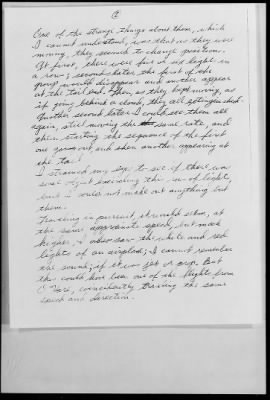 ②
One of the strange things about them, which
I cannot understand, was that as they were
moving, they seemed to change positions.
At first, there were five or six lights in
a row; seconds later the first of the
group would disappear and another appear
at the tail end. Then, as they kept moving, as
if going behind a cloud, they all extinguished.
Another second later I could see them all
again, still moving the same rate and
then starting the sequence of the first
one going out and then another appearing at
the tail.
I strained my eyes to see if there was
some object preceding the row of lights,
but I could not make out anything but
them.
Traveling in pursuit, it would seem, at
the same approximate speed, but much
higher, I also saw the white and red
lights of an airplane; I cannot remember
the sound, if it was jet or prop. But
this could have been one of the flights from
O'Hare, coincidently traveling the same
speed and direction.